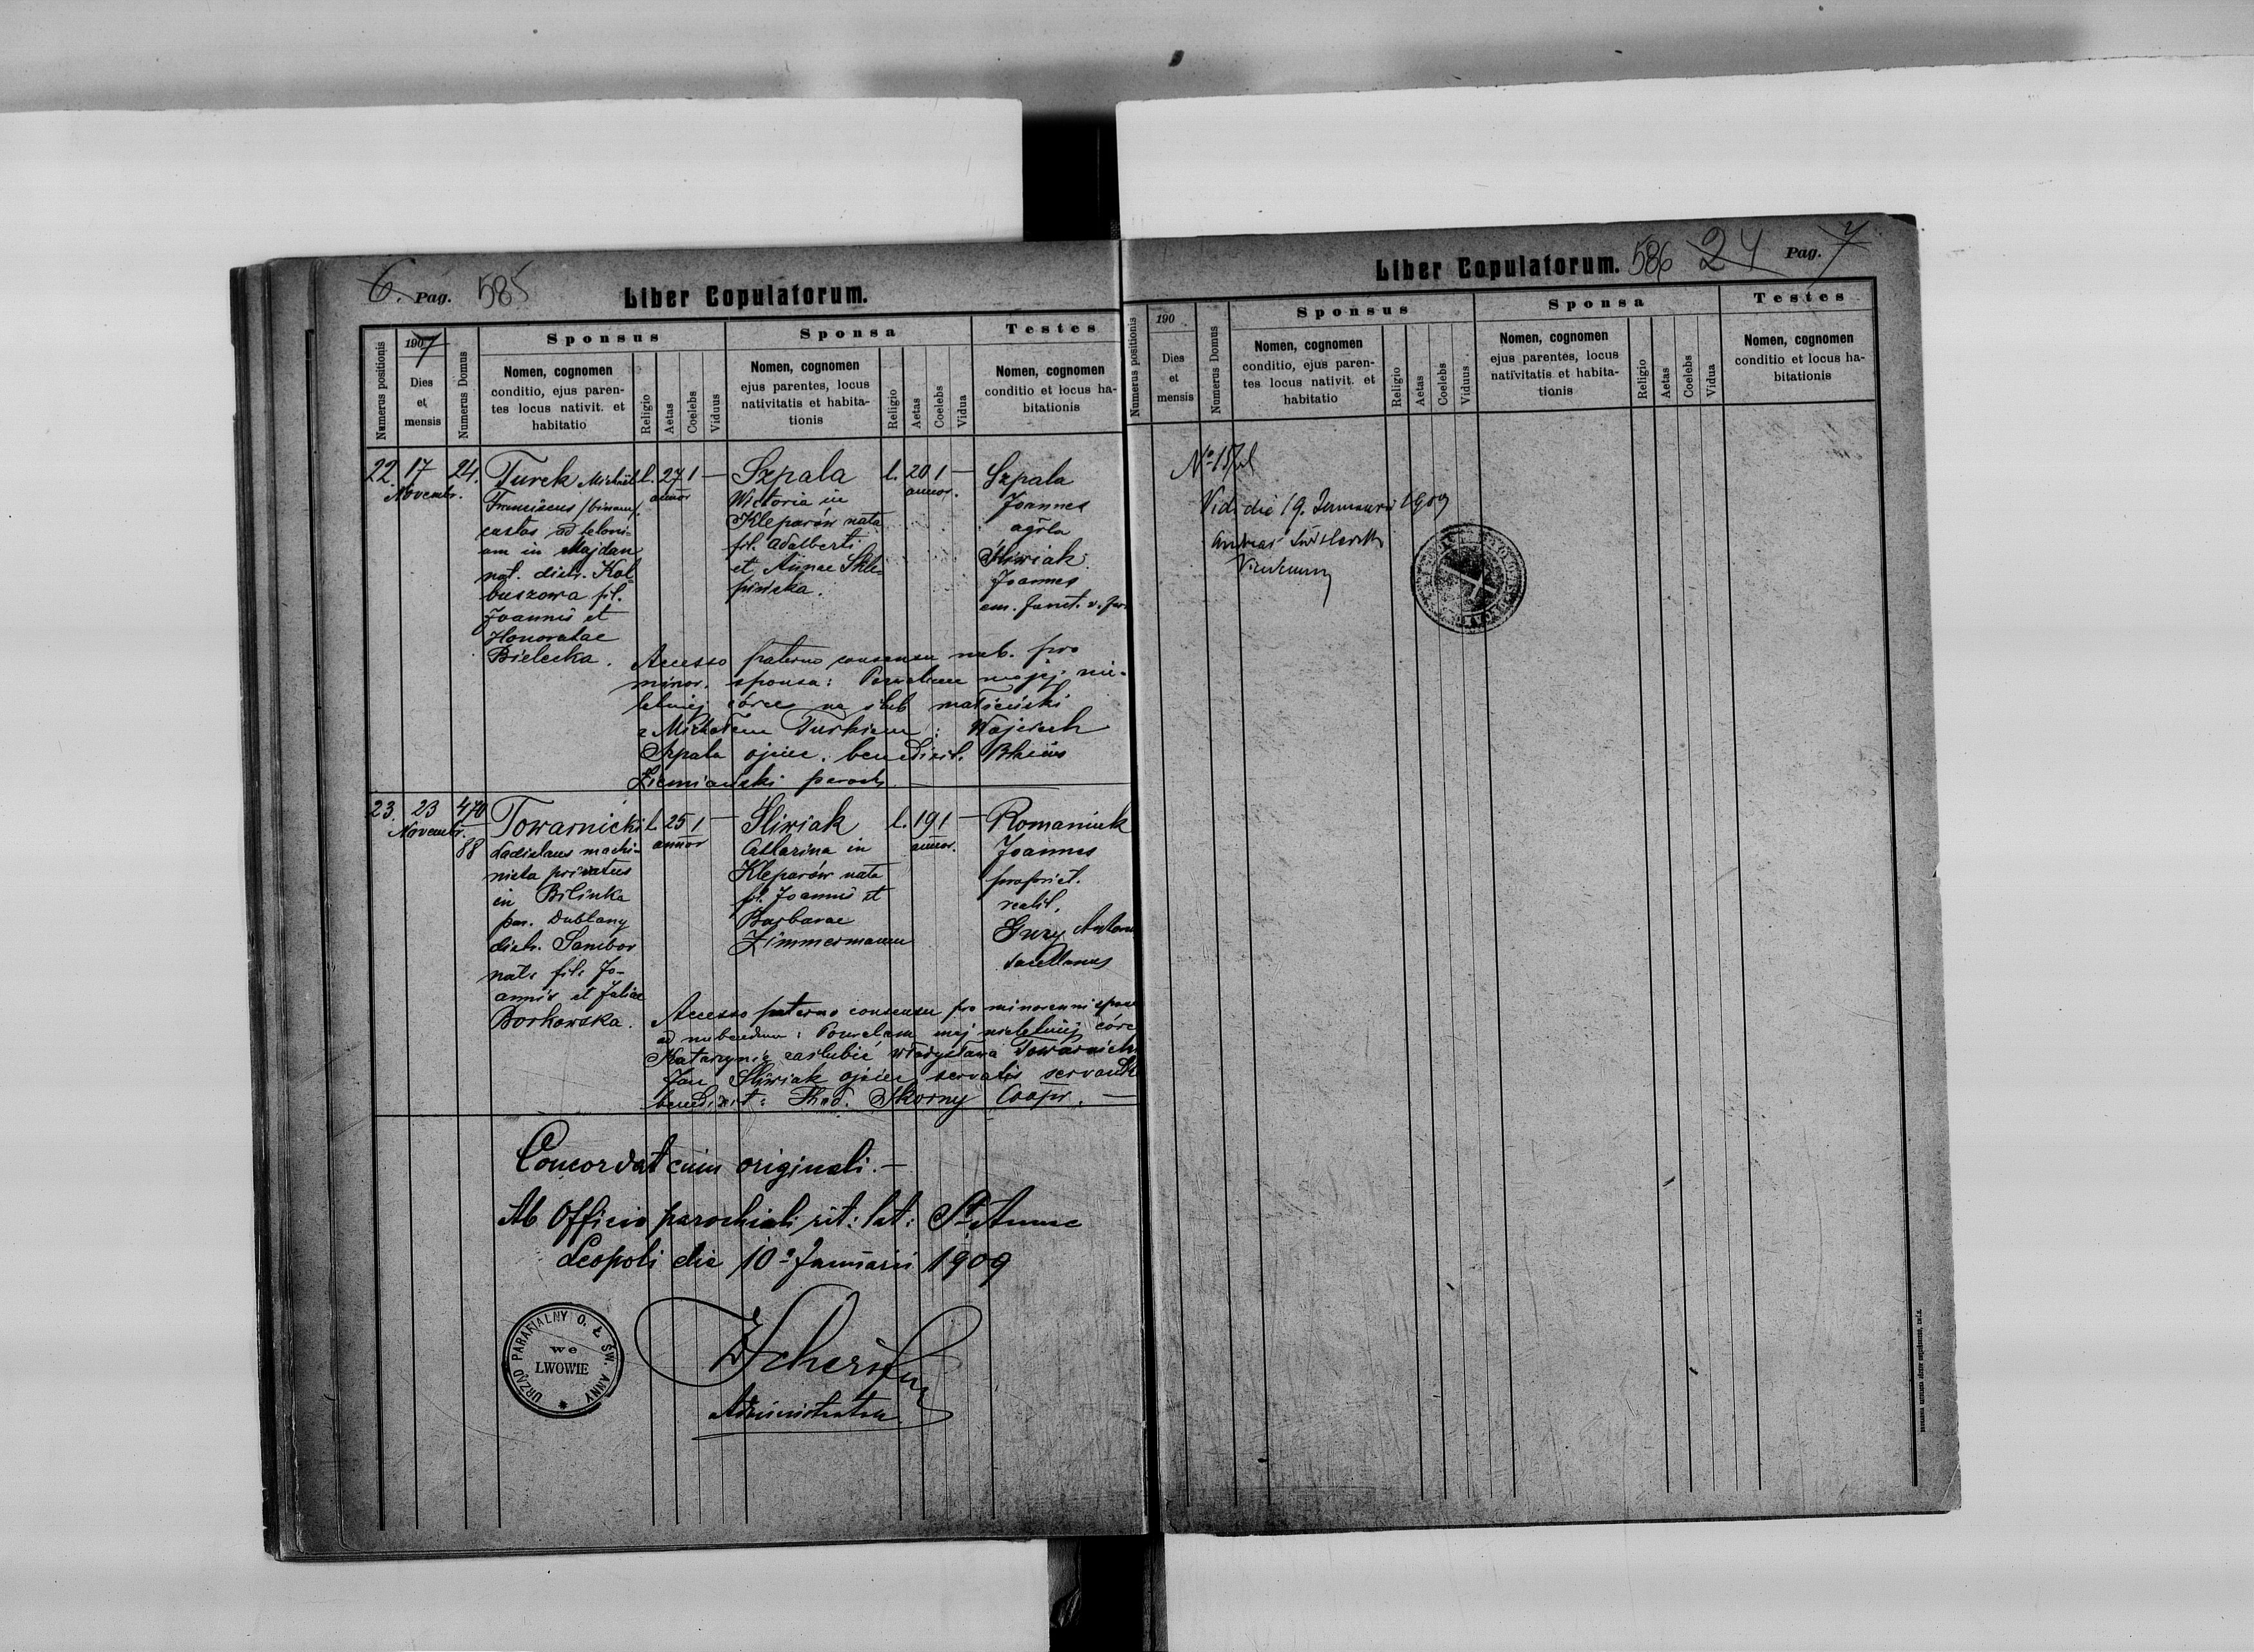 6. Pag. 585
Liber Copulatorum.
Numerus positionis
1907
Dies
et
mensis
Numerus Domus
Sponsus
Nomen, cognomen
conditio, ejus paren-
tes locus nativit. et
habitatio
Religio
Aetas
Coelebs
Viduus
Sponsa
Nomen, cognomen
ejus parentes, locus
nativitatis et habita-
tionis
Religio
Aetas
Coelebs
Vidua
Testes
Nomen, cognomen
conditio et locus ha-
bitationis
22. 17 24.
Novembr.
Turek Michaël
Franciscus /binom/.
custos ad teloni-
um in Majdan
nat. distr. Kol-
buszowa fil.
Joannis et
Honoratae
Bielecka.
l. 27 1 —
annor
Szpala
Victoria in
Kleparów nata
fil. Adalberti
et Annae Skle-
pińska.
l. 20 1 —
annor.
Szpala
Joannes
agrla
Śliwiak
Joannes
em.
Accesso paterno consensu nub. pro
minor. sponsa: Pozwalam mojej nie-
letniej córce na ślub małżeński
z Michałem Turkiem: Wojciech
Szpala ojciec. benedixit.
Ziemiański paroch. —
23. 23 470
Novembr.
88
Towarnicki
Ladislaus machi-
nista privatus
in Bilinka
par. Dublany
distr. Sambor
nat. fil. Jo-
annis et Juliae
Borkowska.
l. 25 1 —
annor
Śliwiak
Catharina in
Kleparów nata
fil. Joannis et
Barbarae
Zimmermann
l. 19 1 —
annor.
Romaniuk
Joannes
propriet.
realit.
Gury Anton
Accesso paterno consensu pro minorenni spons
ad nubendum: Pozwalam mej nieletniej córc
Katarzynie zaślubić Władysława Towarnick
Jan Śliwiak ojciec servatis servand
benedixit: Thad. Skorny Coopr. —
Concordat cum originali. —
Ab Officio parochiali rit: lat: St Annae
Leopoli die 10 Januarii 1909
URZĄD PARAFIALNY O. Ł. ŚW. ANNY
we
LWOWIE
Administrator
Liber Copulatorum. 586 24 Pag. 7
Numerus positionis
190
Dies
et
mensis
Numerus Domus
Sponsus
Nomen, cognomen
conditio, ejus paren-
tes locus nativit. et
habitatio
Religio
Aetas
Coelebs
Viduus
Sponsa
Nomen, cognomen
ejus parentes, locus
nativitatis et habita-
tionis
Religio
Aetas
Coelebs
Vidua
Testes
Nomen, cognomen
conditio et locus ha-
bitationis
Vidi die 19. Januarii 1909